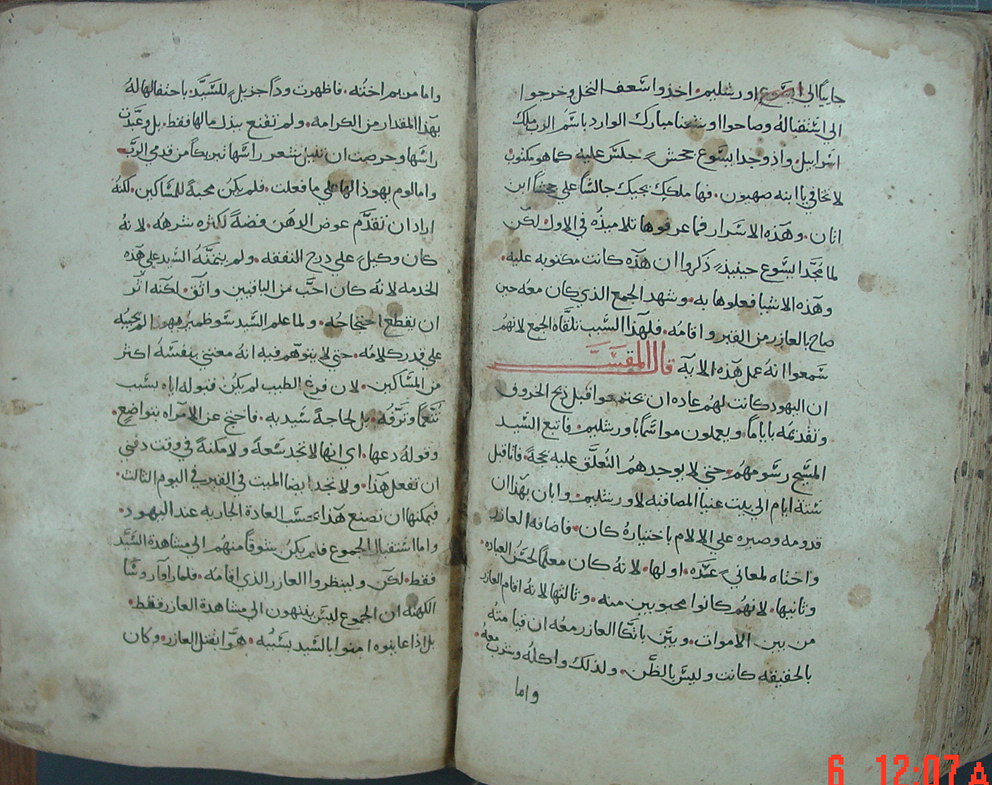 جائيًا الي ايسُوع اورشليم. اخذوا سَّعف النخل وخرجوا
الي استقباله وصاحوا اوشعنا مبارك الوارد باسَّم الرب ملك
اسرَاييل. واذ وجد ايسُّوع جحش جلسَّ عليه كما هو مكتوب
لا تخافي يا ابنه صهيون. فها ملكك يجيك جالسًّا علي جحش ابن
اتان. وهَذه الاسَرار فما عرفوها تلاميذُه في الاول. لكن
لما تمجَّد ايسُّوع حينيذٍ ذكروا ان هَذه كانت مكتوبه عليه.
وهَذه الاشيا فعلوها به. وشهد الجمع الذي كان معه حين
صاح بالعازر من القبر واقامه. فلهَذا السَّبب تلقَّاه الجمع لانهُم
سَّمعوا انهُ عمل هَذه الايه قال المفسَّر
ان اليهود كانت لهُم عاده ان يجتمعوا قبل ذبح الخروف
وتقدمَه باياماً. ويعملون مواسَّماً باورشليم. فاتبع السَّيد
المسَّيح رسَّومهُم. حتي لا يوجدهُم التعلَّق عليه بحجة. فاتا قبل
ستة ايام الي بيت عنيا المصاقبه لاورشليم. وابان بهَذا ان
قدومه وصبره علي الالام باختيارهُ كان. فاضافه العازر
واختاه لمعاني عدَّه. اولها. لانهُ كان معلماً لحسَّن العباده.
وثانيها. لانهُم كانوا محبوبين منه. وثالثها لانهُ اقام العازر
من بين الاموات. وبيَّن باتكا العازر معُه ان قيامتهُ
بالحقيقه كانت وليسَّ بالظَّن. ولذلك واكلهُ وشرب معهُ.
واما
واما مريم اخته. فاظهرت وداً جزيل للسَّيَّد باحتفالها لهُ
بهَذا المقدار من الكرامه. ولم تقنع ببذل مالها فقط. بل وعبَّدت
راسَّها وحرصت ان تقبل بشعر راسَّها تبريكًا من قدمي الربَّ.
واما لوم يهوذا لها علي ما فعلت. فلم يكن محبةً للمسَّاكين. لكنهُ
اراد ان تقدَّم عوض الدهُن فضةً لكثره شرهه. لانهُ
كان وكيل علي درج النفقه. ولم يتمنَّهُ السَّيد علي هَذه
الخدمه لانهُ كان احبَّ من الباقين واثق. لكنه اثَر
ان يقطع احتجاجُه. ولما علم السَّيد سَّو ضمير يهودا لم يجيبه
علي قدر كلامُه. حتي لا يتوهَّم فيه انهُ معتني بنفسَّهُ اكثر
من المسَّاكين. لان فرغ الطيب لم يكن قبوله اياه بسَّبب
تنَعُّماً وترَّفُه. بل لحاجةً شديده. فاحتج عن الامراه بتواضع.
وقوله دعها. اي انها لا تجد سَّعةً ولا مكنةً في وقت دفني
ان تفعل هَذا. ولا تجد ايضا الميت في القبر في اليوم الثالث.
فيمكنها ان تصنع هَذا بحسَّب العادة الجاريه عند اليهود.
واما استقبال الجموع فلم يكن شوقًا منهُم الي مشاهدة السَّيد
فقط. لكن. ولينظروا العازر الذي اقامه. فلما راوا روسَّا
الكهَنه ان الجموع ليسَّ ينتهون الي مشاهدة العازر فقط.
بل اذا عاينوه امنوا بالسَّيد بسَّببه. همَّوا بقتل العازر. وكان
6 12:07 A